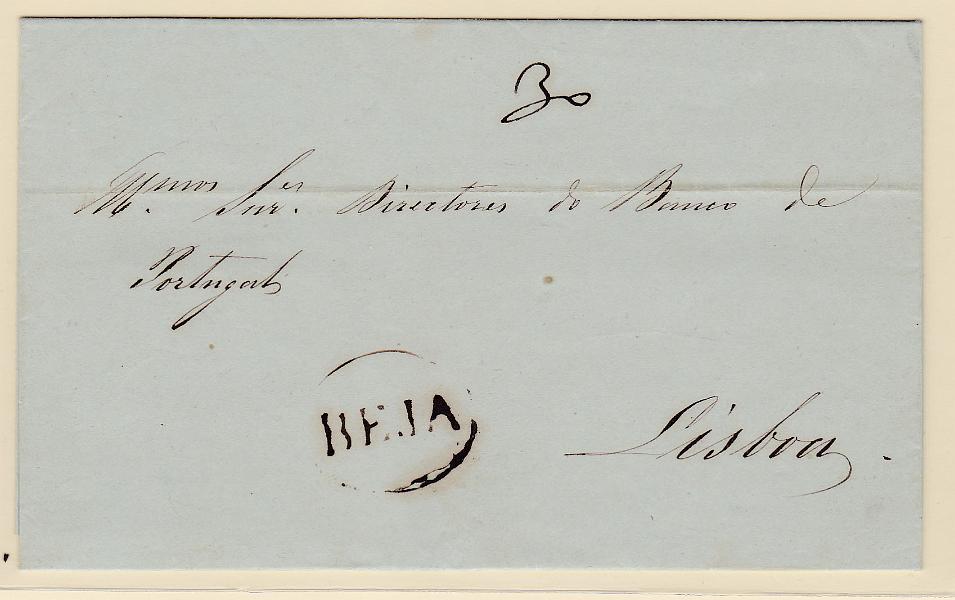 30
Illmos Snr.es Directores do Banco de
Portugal
BEJA
Lisboa.